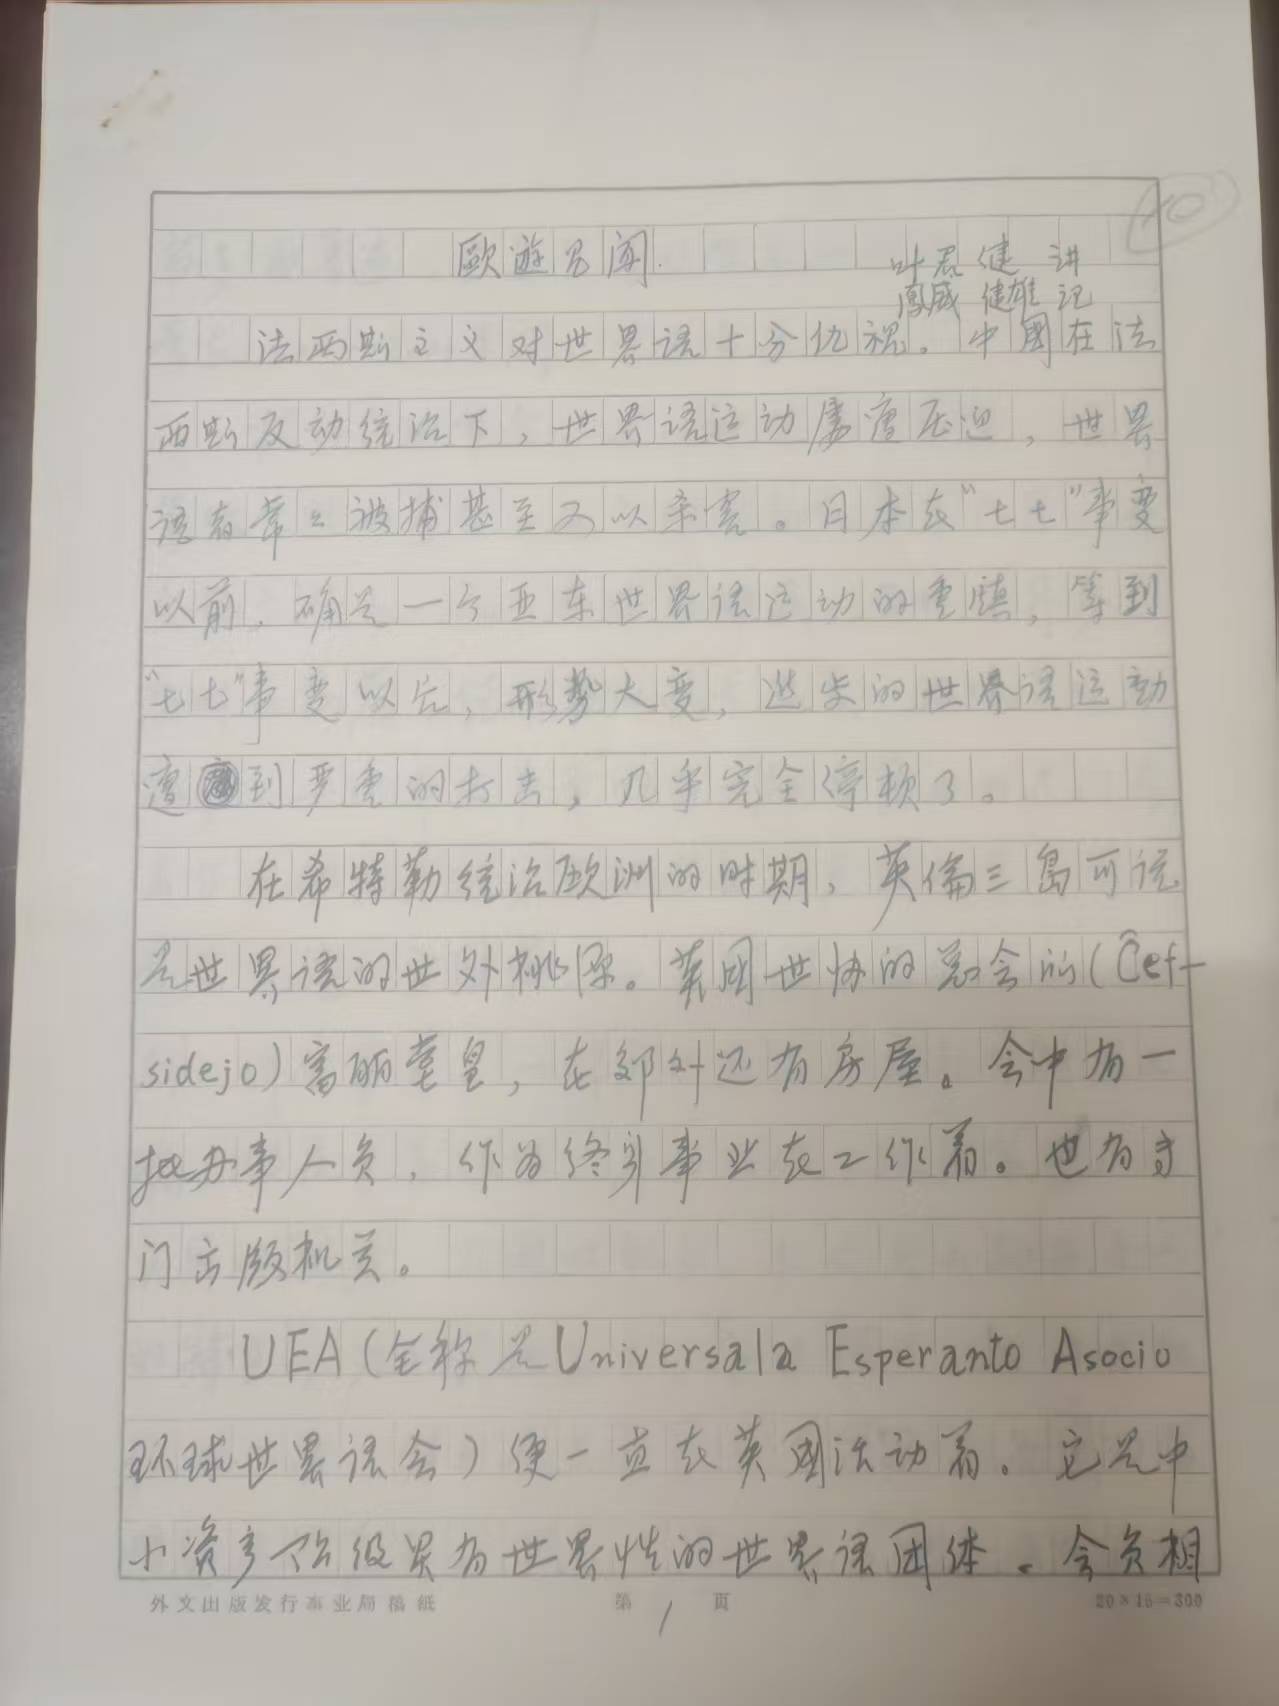 10
歐遊見闻.
叶君健 讲
鳳威 健雄 记
法西斯主义对世界语十分仇視。中國在法
西斯反动统治下，世界语运动屡遭压迫，世界
语者常々被捕甚至又以杀害。日本在“七七”事变
以前，确是一个亚东世界语运动的重鎮，等到
“七七”事变以后，形势大变，进步的世界语运动
遭到严重的打击，几乎完全停顿了。
在希特勒统治欧洲的时期，英倫三島可说
是世界语的世外桃源。英国世协的总会所(Ĉef-
sidejo)富丽堂皇，在郊外还有房屋。会中有一
批办事人员，作为终身事业在工作着。也有专
门出版机关。
UEA(全称是Universala Esperanto Asocio
环球世界语会)便一直在英國活动着。它是中
小资产阶级具有世界性的世界语团体。会员相
外文出版发行事业局稿纸 第 1 页 20×15=300